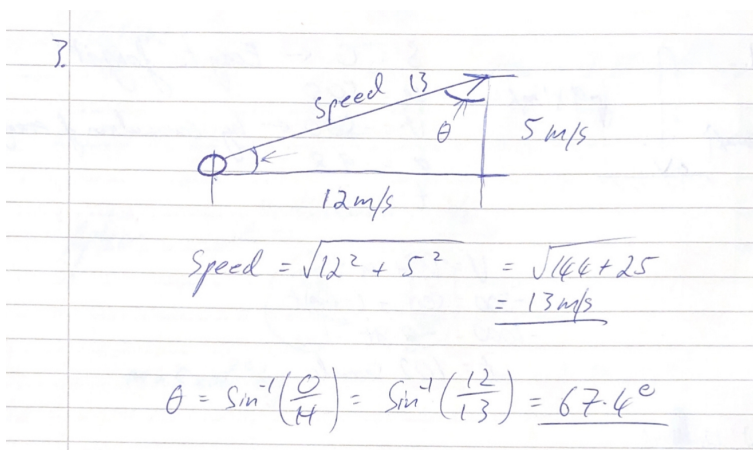 3.
Speed 13
θ
5 m/s
12 m/s
Speed = √12² + 5² = √144 + 25
= 13 m/s
θ = Sin⁻¹(O/H) = Sin⁻¹(12/13) = 67.4°